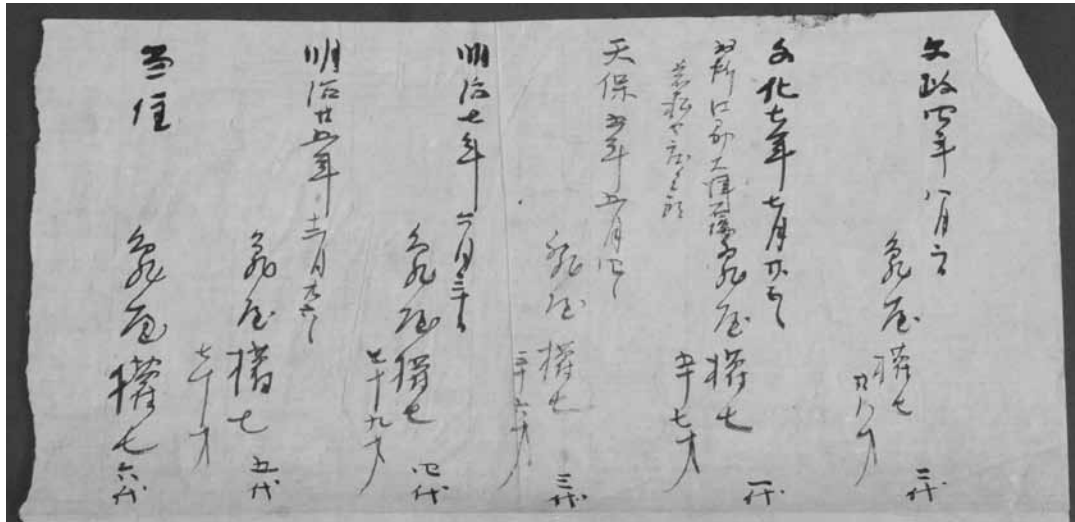 文政四年八月六日
亀屋権七
廿八才
二代
文化七年七月廿七日
亀屋権七
五十七才
一代
天保五年五月四日
亀屋権七
三十六才
三代
明治七年六月三十日
亀屋権七
七十九才
四代
明治廿五年十二月九日
亀屋権七
七十才
五代
当住
亀屋権七
六代